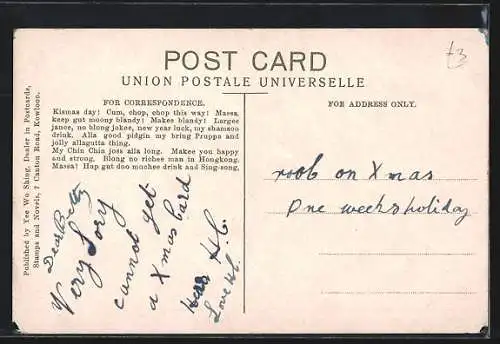 £3
POST CARD
UNION POSTALE UNIVERSELLE
FOR CORRESPONDENCE.
FOR ADDRESS ONLY.
Kismas day! Cum, chop, chop this way! Massa,
keep gut moony blandy! Makee blandy! Largee
janoe, no blong jokee, new year luck, my shamson
drink. Alla goode pidgin my bring Pruppa and
jolly allagutta thing.
My Chin Chin joss alla long. Makee you happy
and strong. Blong no richee man in Hongkong.
Massa! Hap gut doo muchee drink and Sing-song.
Published by Yee Wo Shing, Dealer in Postcards,
Stamps and Novels, 7 Canton Road, Kowloon.
Dear Betty
Very Sory
cannot get
a Xmas Card
H.C.
Love
on Xmas
One weeks holiday